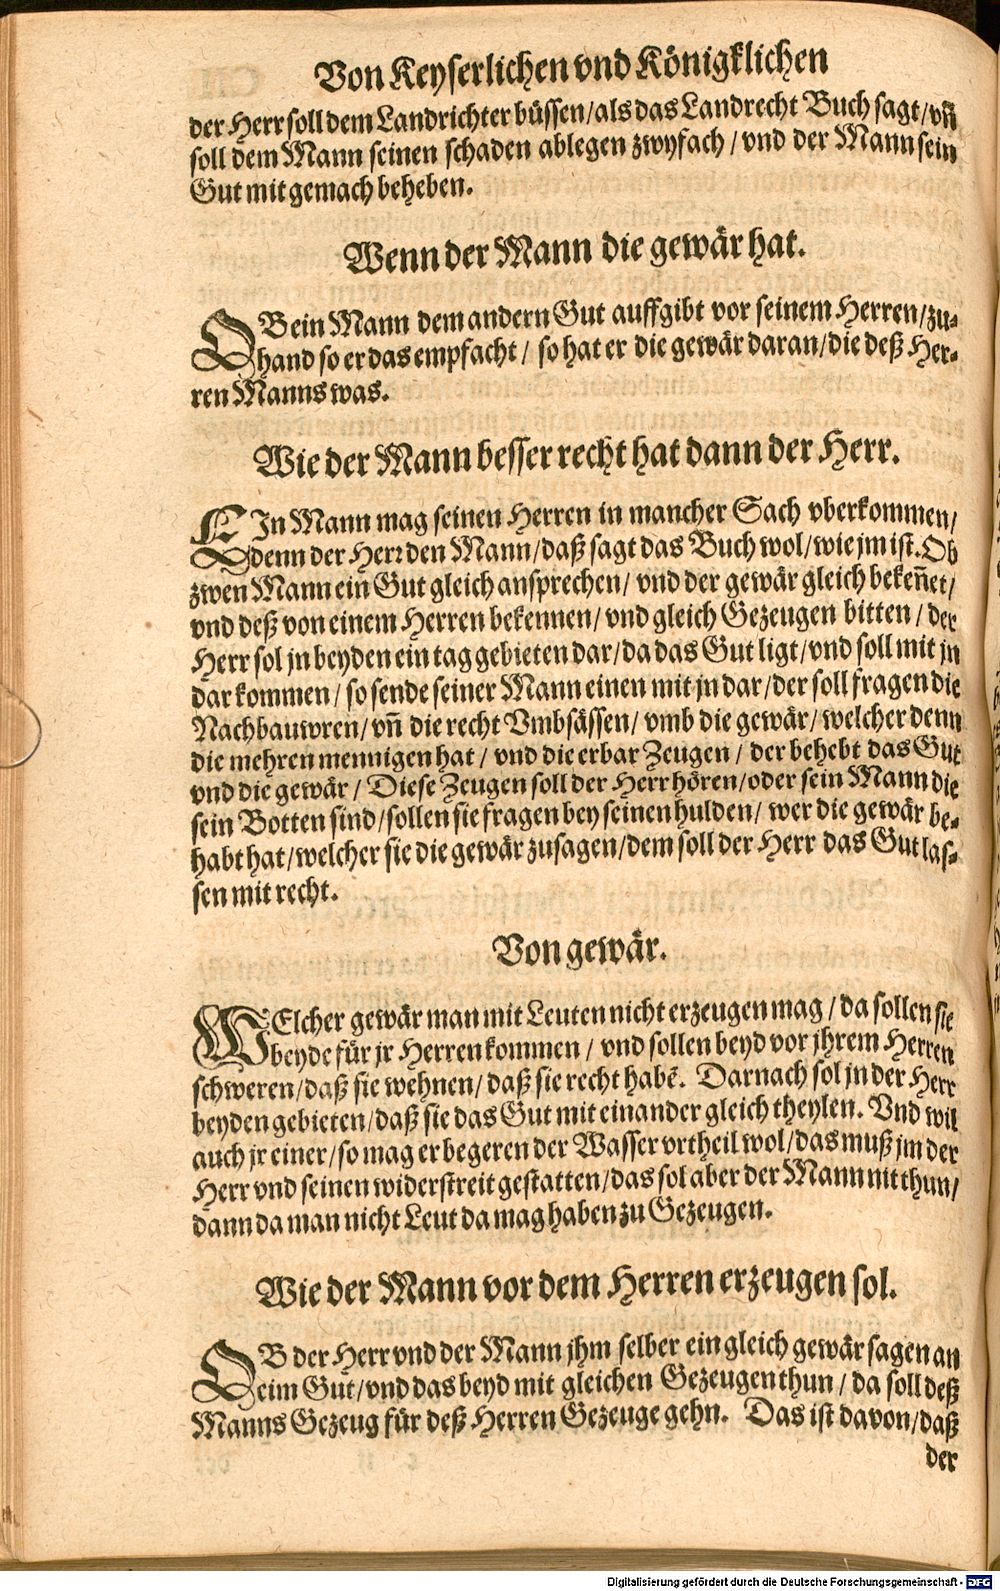 Von Keyserlichen vnd Königklichen
der Herr soll dem Landrichter büssen/als das Landrecht Buch sagt/vñ
soll dem Mann seinen schaden ablegen zwyfach/vnd der Mann sein
Gut mit gemach beheben.
Wenn der Mann die gewär hat.
OB ein Mann dem andern Gut auffgibt vor seinem Herren/zu-
hand so er das empfacht/so hat er die gewär daran/die deß Her-
ren Manns was.
Wie der Mann besser recht hat dann der Herr.
EIn Mann mag seinen Herren in mancher Sach vberkommen/
denn der Herr den Mann/daß sagt das Buch wol/wie jm ist. Ob
zwen Mann ein Gut gleich ansprechen/vnd der gewär gleich bekeñet/
vnd deß von einem Herren bekennen/vnd gleich Gezeugen bitten/der
Herr sol jn beyden ein tag gebieten dar/da das Gut ligt/vnd soll mit jn
dar kommen/so sende seiner Mann einen mit jn dar/der soll fragen die
Nachbauwren/vñ die recht Vmbsässen/vmb die gewär/welcher denn
die mehren mennigen hat/vnd die erbar Zeugen/der behebt das Gut
vnd die gewär/Diese Zeugen soll der Herr hören/oder sein Mann die
sein Botten sind/sollen sie fragen bey seinen hulden/wer die gewär be-
habt hat/welcher sie die gewär zusagen/dem soll der Herr das Gut las-
sen mit recht.
Von gewär.
WElcher gewär man mit Leuten nicht erzeugen mag/da sollen sie
beyde für jr Herren kommen/vnd sollen beyd vor jhrem Herren
schweren/daß sie wehnen/daß sie recht habẽ. Darnach sol jn der Herr
beyden gebieten/daß sie das Gut mit einander gleich theylen. Vnd wil
auch jr einer/so mag er begeren der Wasser vrtheil wol/das muß jm der
Herr vnd seinen widerstreit gestatten/das sol aber der Mann nit thun/
dann da man nicht Leut da mag haben zu Gezeugen.
Wie der Mann vor dem Herren erzeugen sol.
OB der Herr vnd der Mann jhm selber ein gleich gewär sagen an
eim Gut/vnd das beyd mit gleichen Gezeugen thun/da soll deß
Manns Gezeug für deß Herren Gezeuge gehn. Das ist davon/daß
der
Digitalisierung gefördert durch die Deutsche Forschungsgemeinschaft - DFG